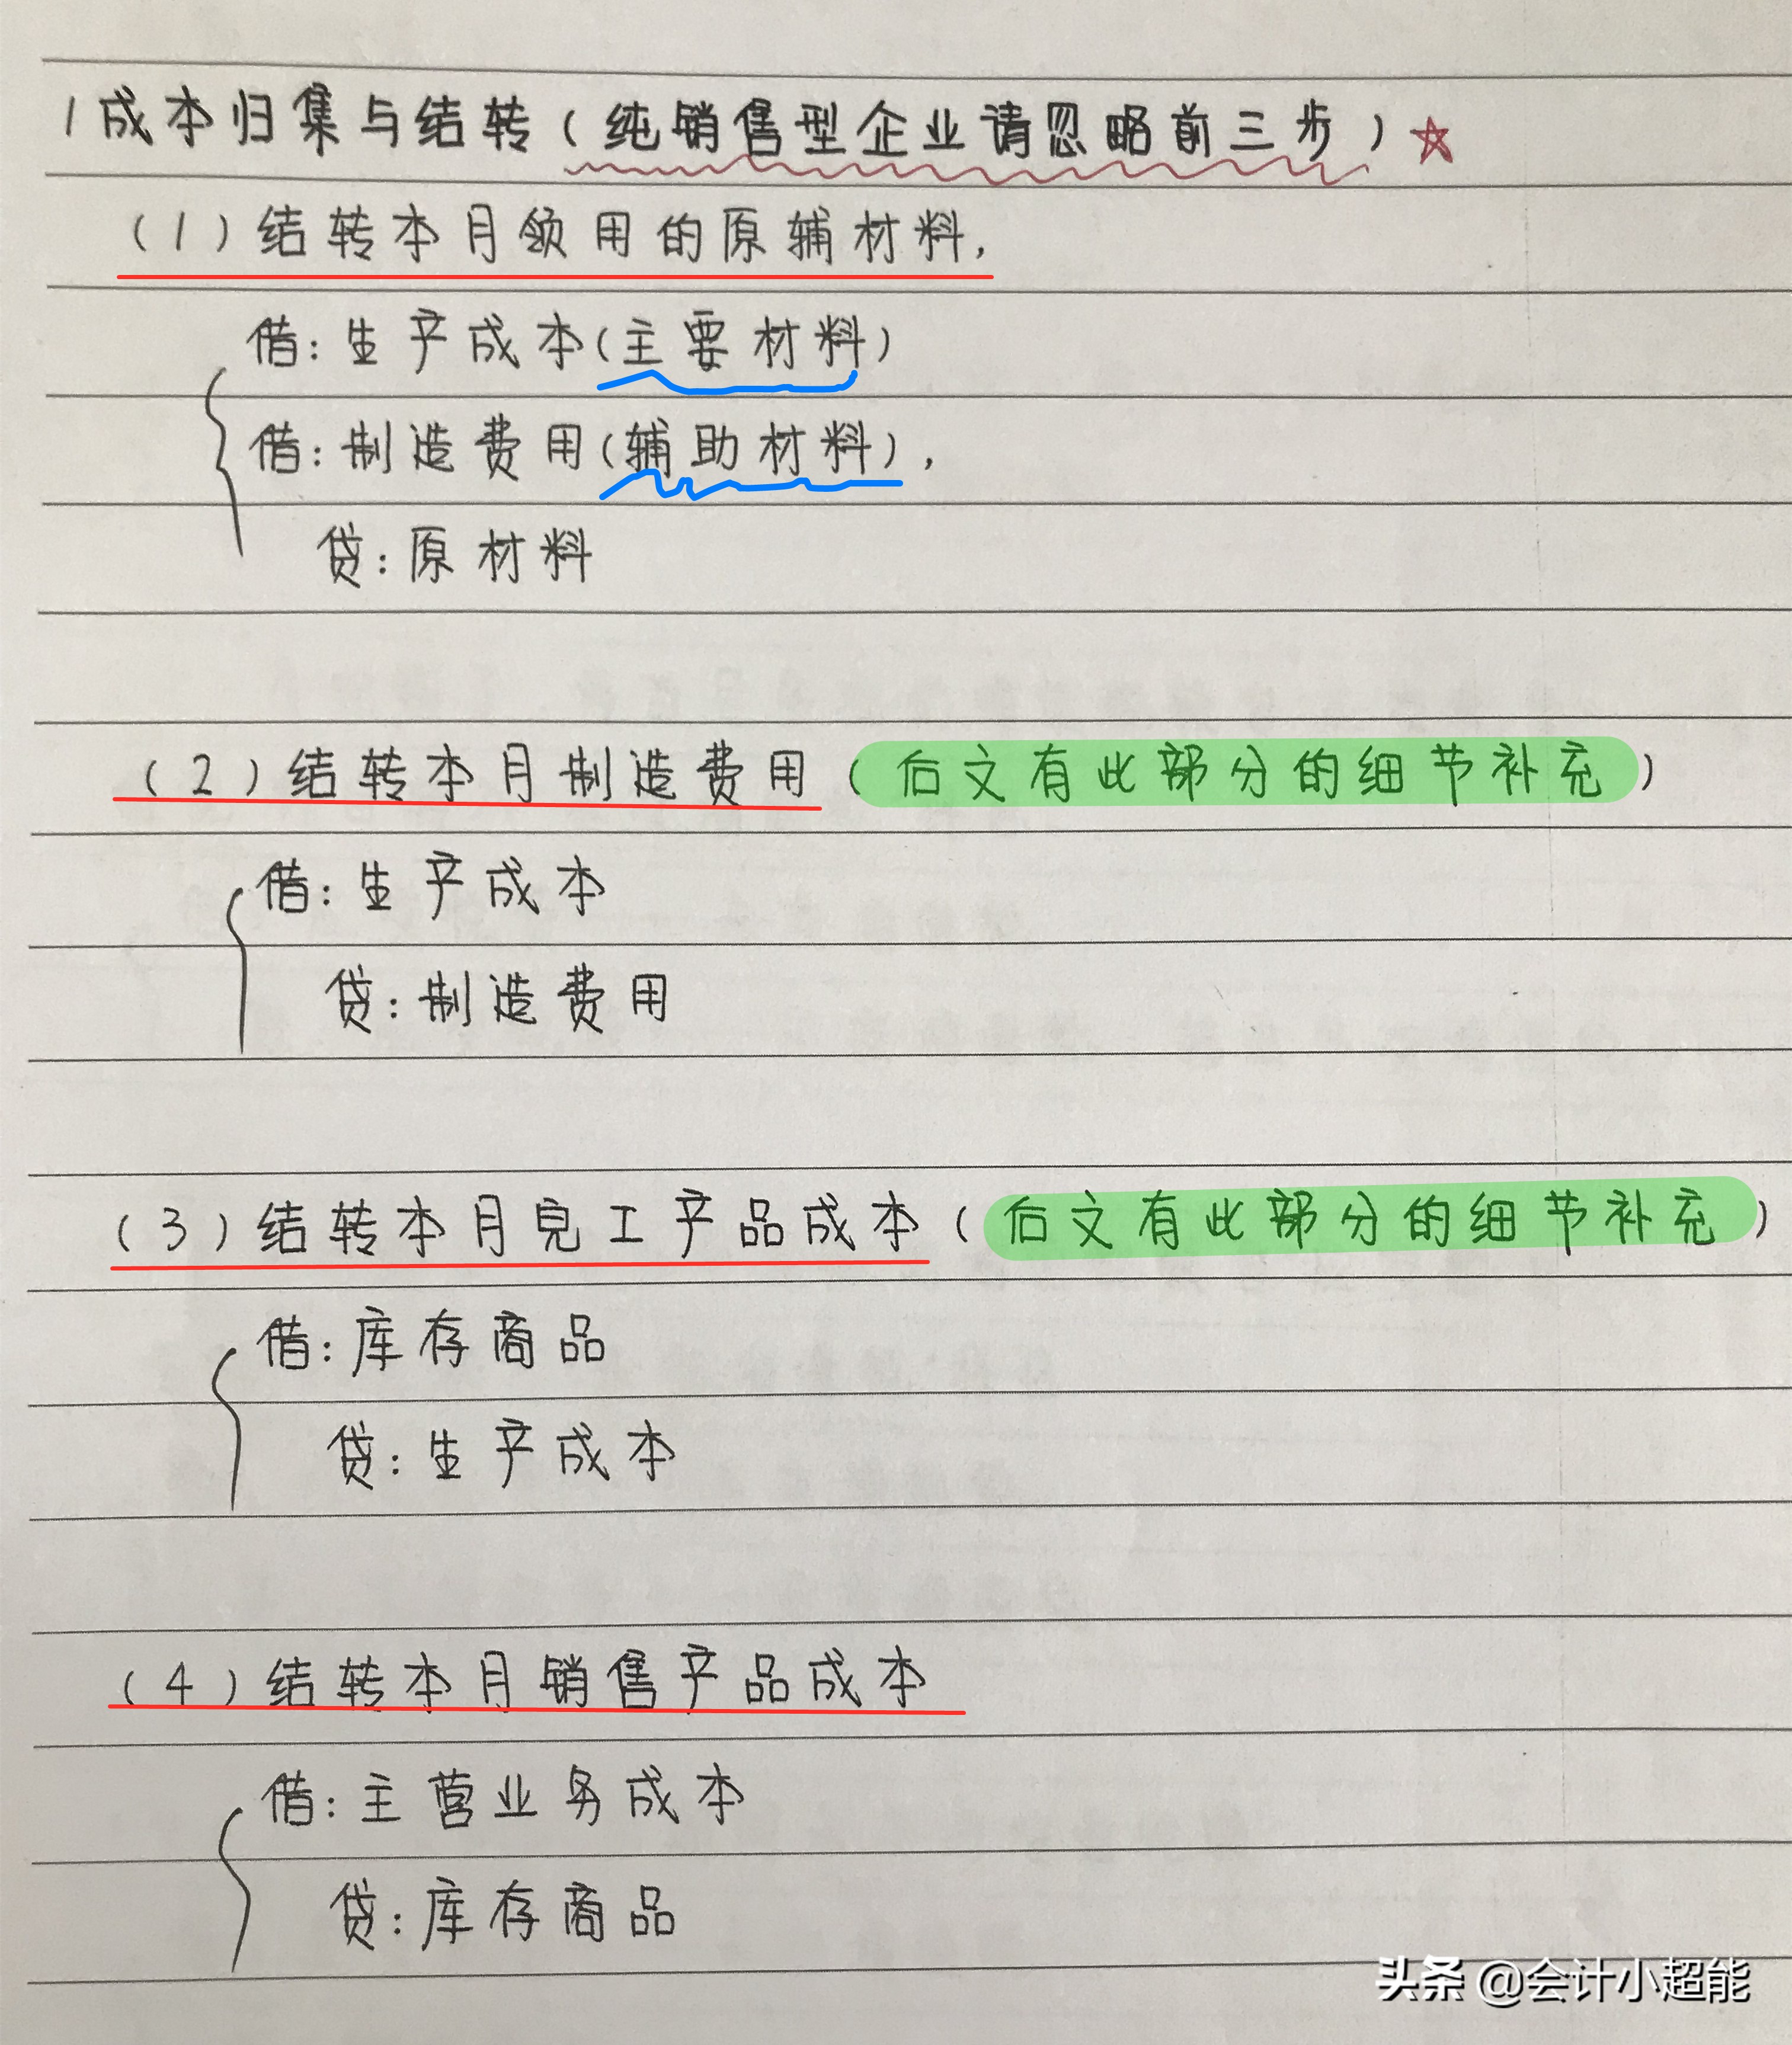 1成本归集与结转(纯销售型企业请忽略前三步)☆
(1)结转本月领用的原辅材料,
借:生产成本(主要材料)
借:制造费用(辅助材料),
贷:原材料
(2)结转本月制造费用(后文有此部分的细节补充)
借:生产成本
贷:制造费用
(3)结转本月完工产品成本(后文有此部分的细节补充)
借:库存商品
贷:生产成本
(4)结转本月销售产品成本
借:主营业务成本
贷:库存商品
头条 @会计小超能